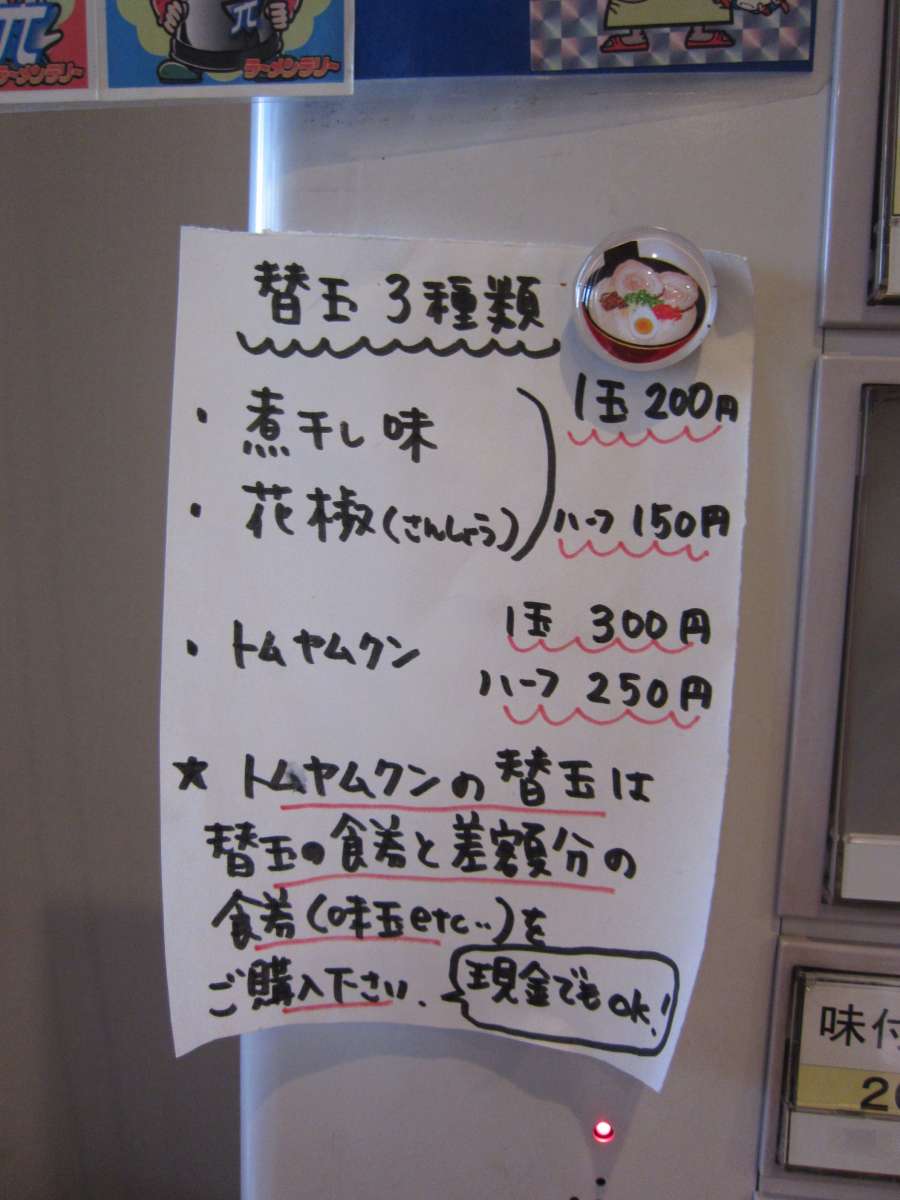 π
π
ラーメンラリー
ラーメンラリー
替玉 3種類
・煮干し味
1玉 200円
・花椒(さんしょう)
ハーフ 150円
・トムヤムクン
1玉 300円
ハーフ 250円
★ トムヤムクンの替玉は
替玉の食券と差額分の
食券(味玉etc…)を
ご購入下さい.
現金でもok!
味付
20